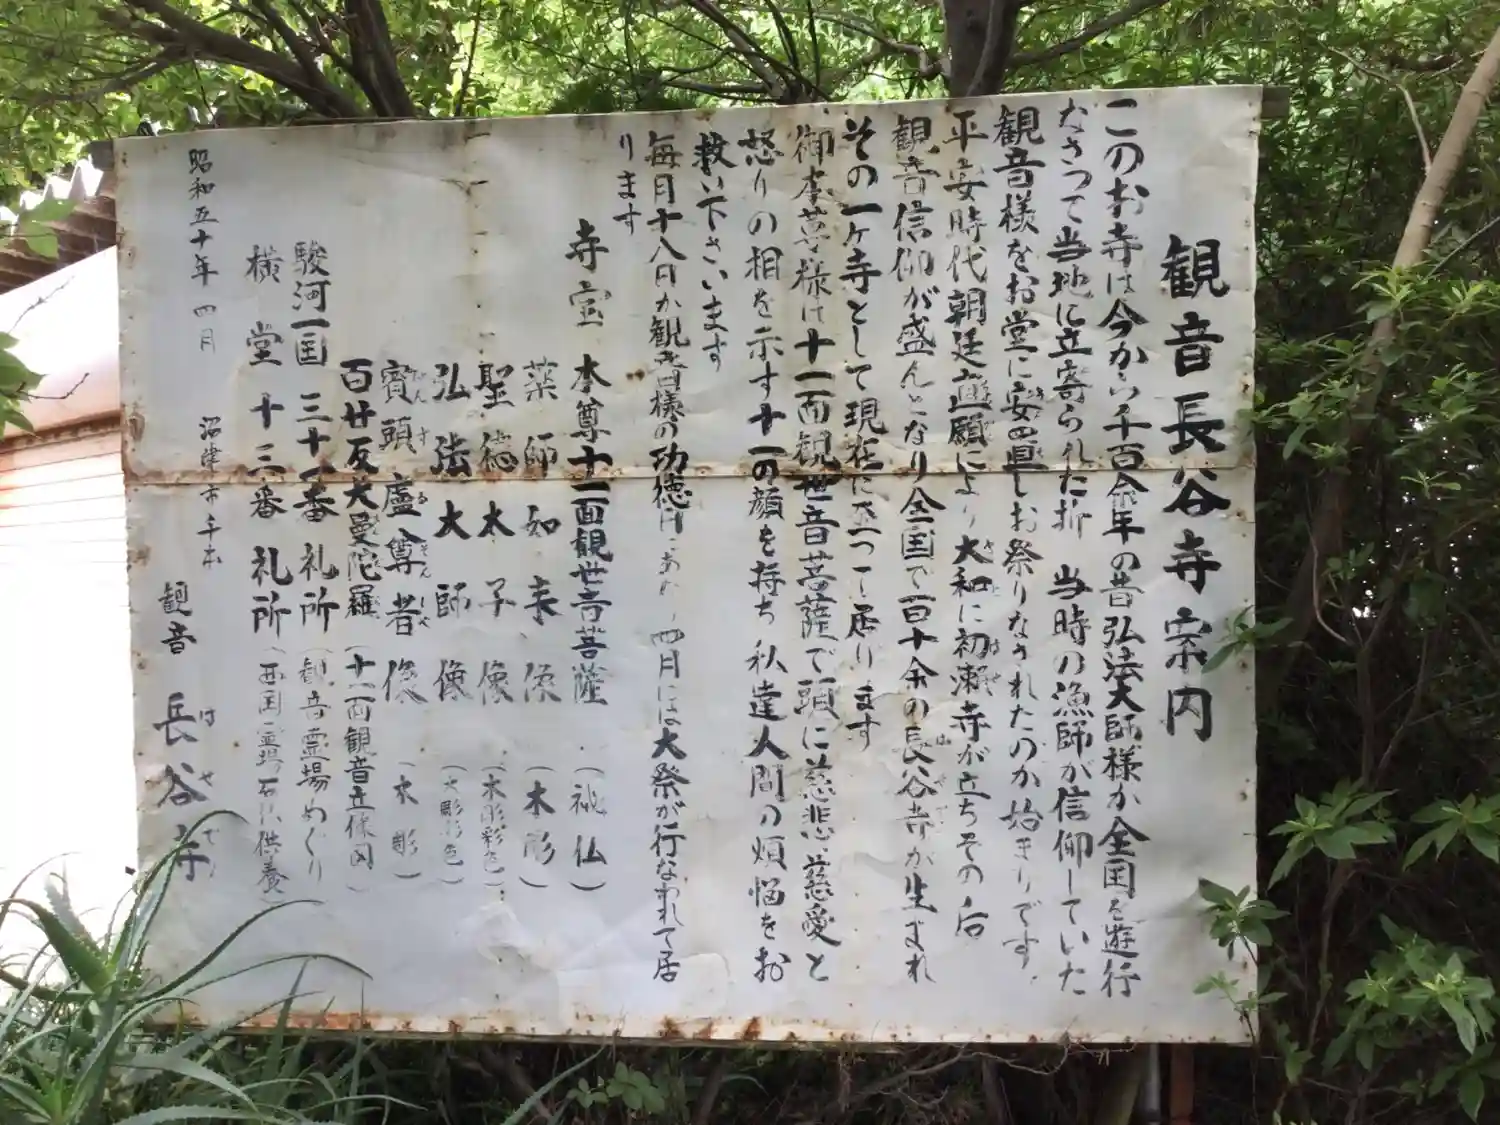 観音長谷寺案内
このお寺は今から千百余年の昔弘法大師様が全国を遊行
なさって当地に立寄られた折 当時の漁師が信仰していた
観音様をお堂に安置しお祭りなされたのが始まりです。
平安時代朝廷遊願により大和に初瀬寺が立ちその后
観音信仰が盛んとなり全国で二百十余の長谷寺が生まれ
その一ヶ寺として現在に至って居ります
御本尊様は十一面観世音菩薩で頭に慈悲慈愛と
怒りの相を示す十一の顔を持ち私達人間の煩悩をお
救い下さいます
毎月十八日が観音様の功徳日にあたり四月には大祭が行なわれて居
ります
寺宝 本尊十一面観世音菩薩 (秘仏)
薬師如来像 (木彫)
聖徳太子像 (木彫彩色)
弘法大師像 (木彫彩色)
賓頭盧尊者像 (木彫)
百廿反大曼陀羅 (十一面観音立像図)
駿河一国 三十一番 礼所 (観音霊場めぐり
横堂 十三番 礼所 (西国霊場石仏供養)
昭和五十年四月 沼津市千本
観音 長谷寺
はせでら